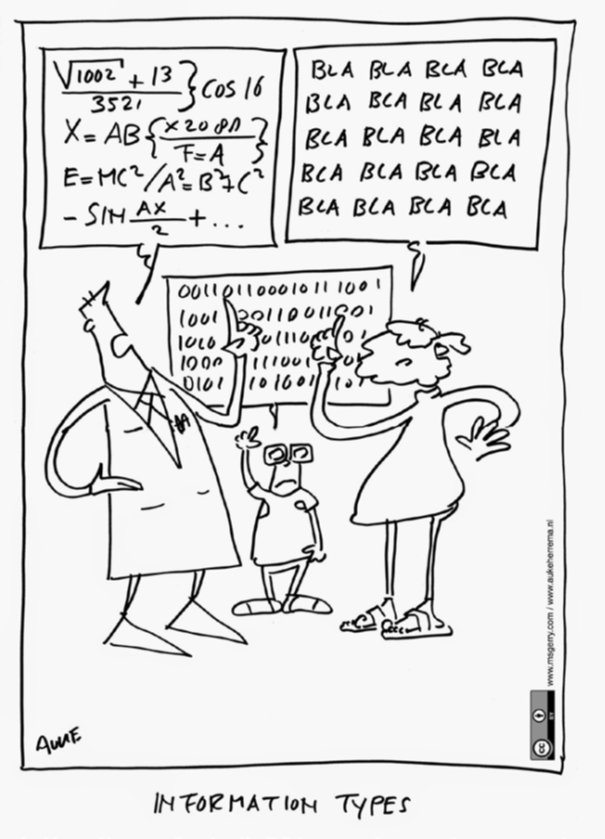 √1002 + 13
3521
} COS 16
X = AB { X 20 8
F=A }
E=MC²/A²=B²+C²
- SIN AX
2
+ ...
BLA BLA BLA BLA
BLA BLA BLA BLA
BLA BLA BLA BLA
BLA BLA BLA BLA
BLA BLA BLA BLA
00110110001011 1001
1001
1010
1000
0101
AUKE
www.msgerry.com / www.aukeherrema.nl
cc
BY
INFORMATION TYPES